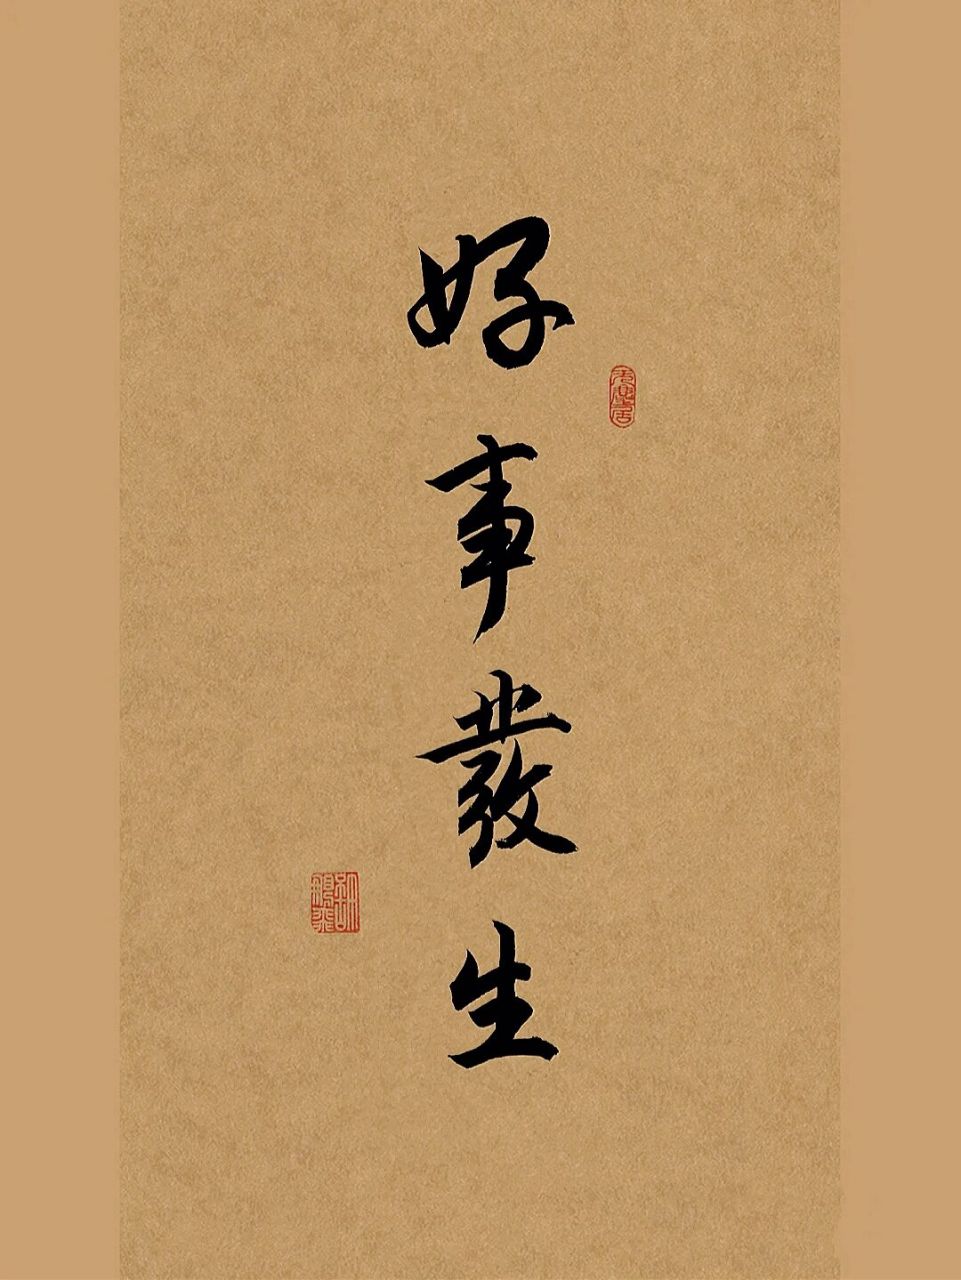 好事發生